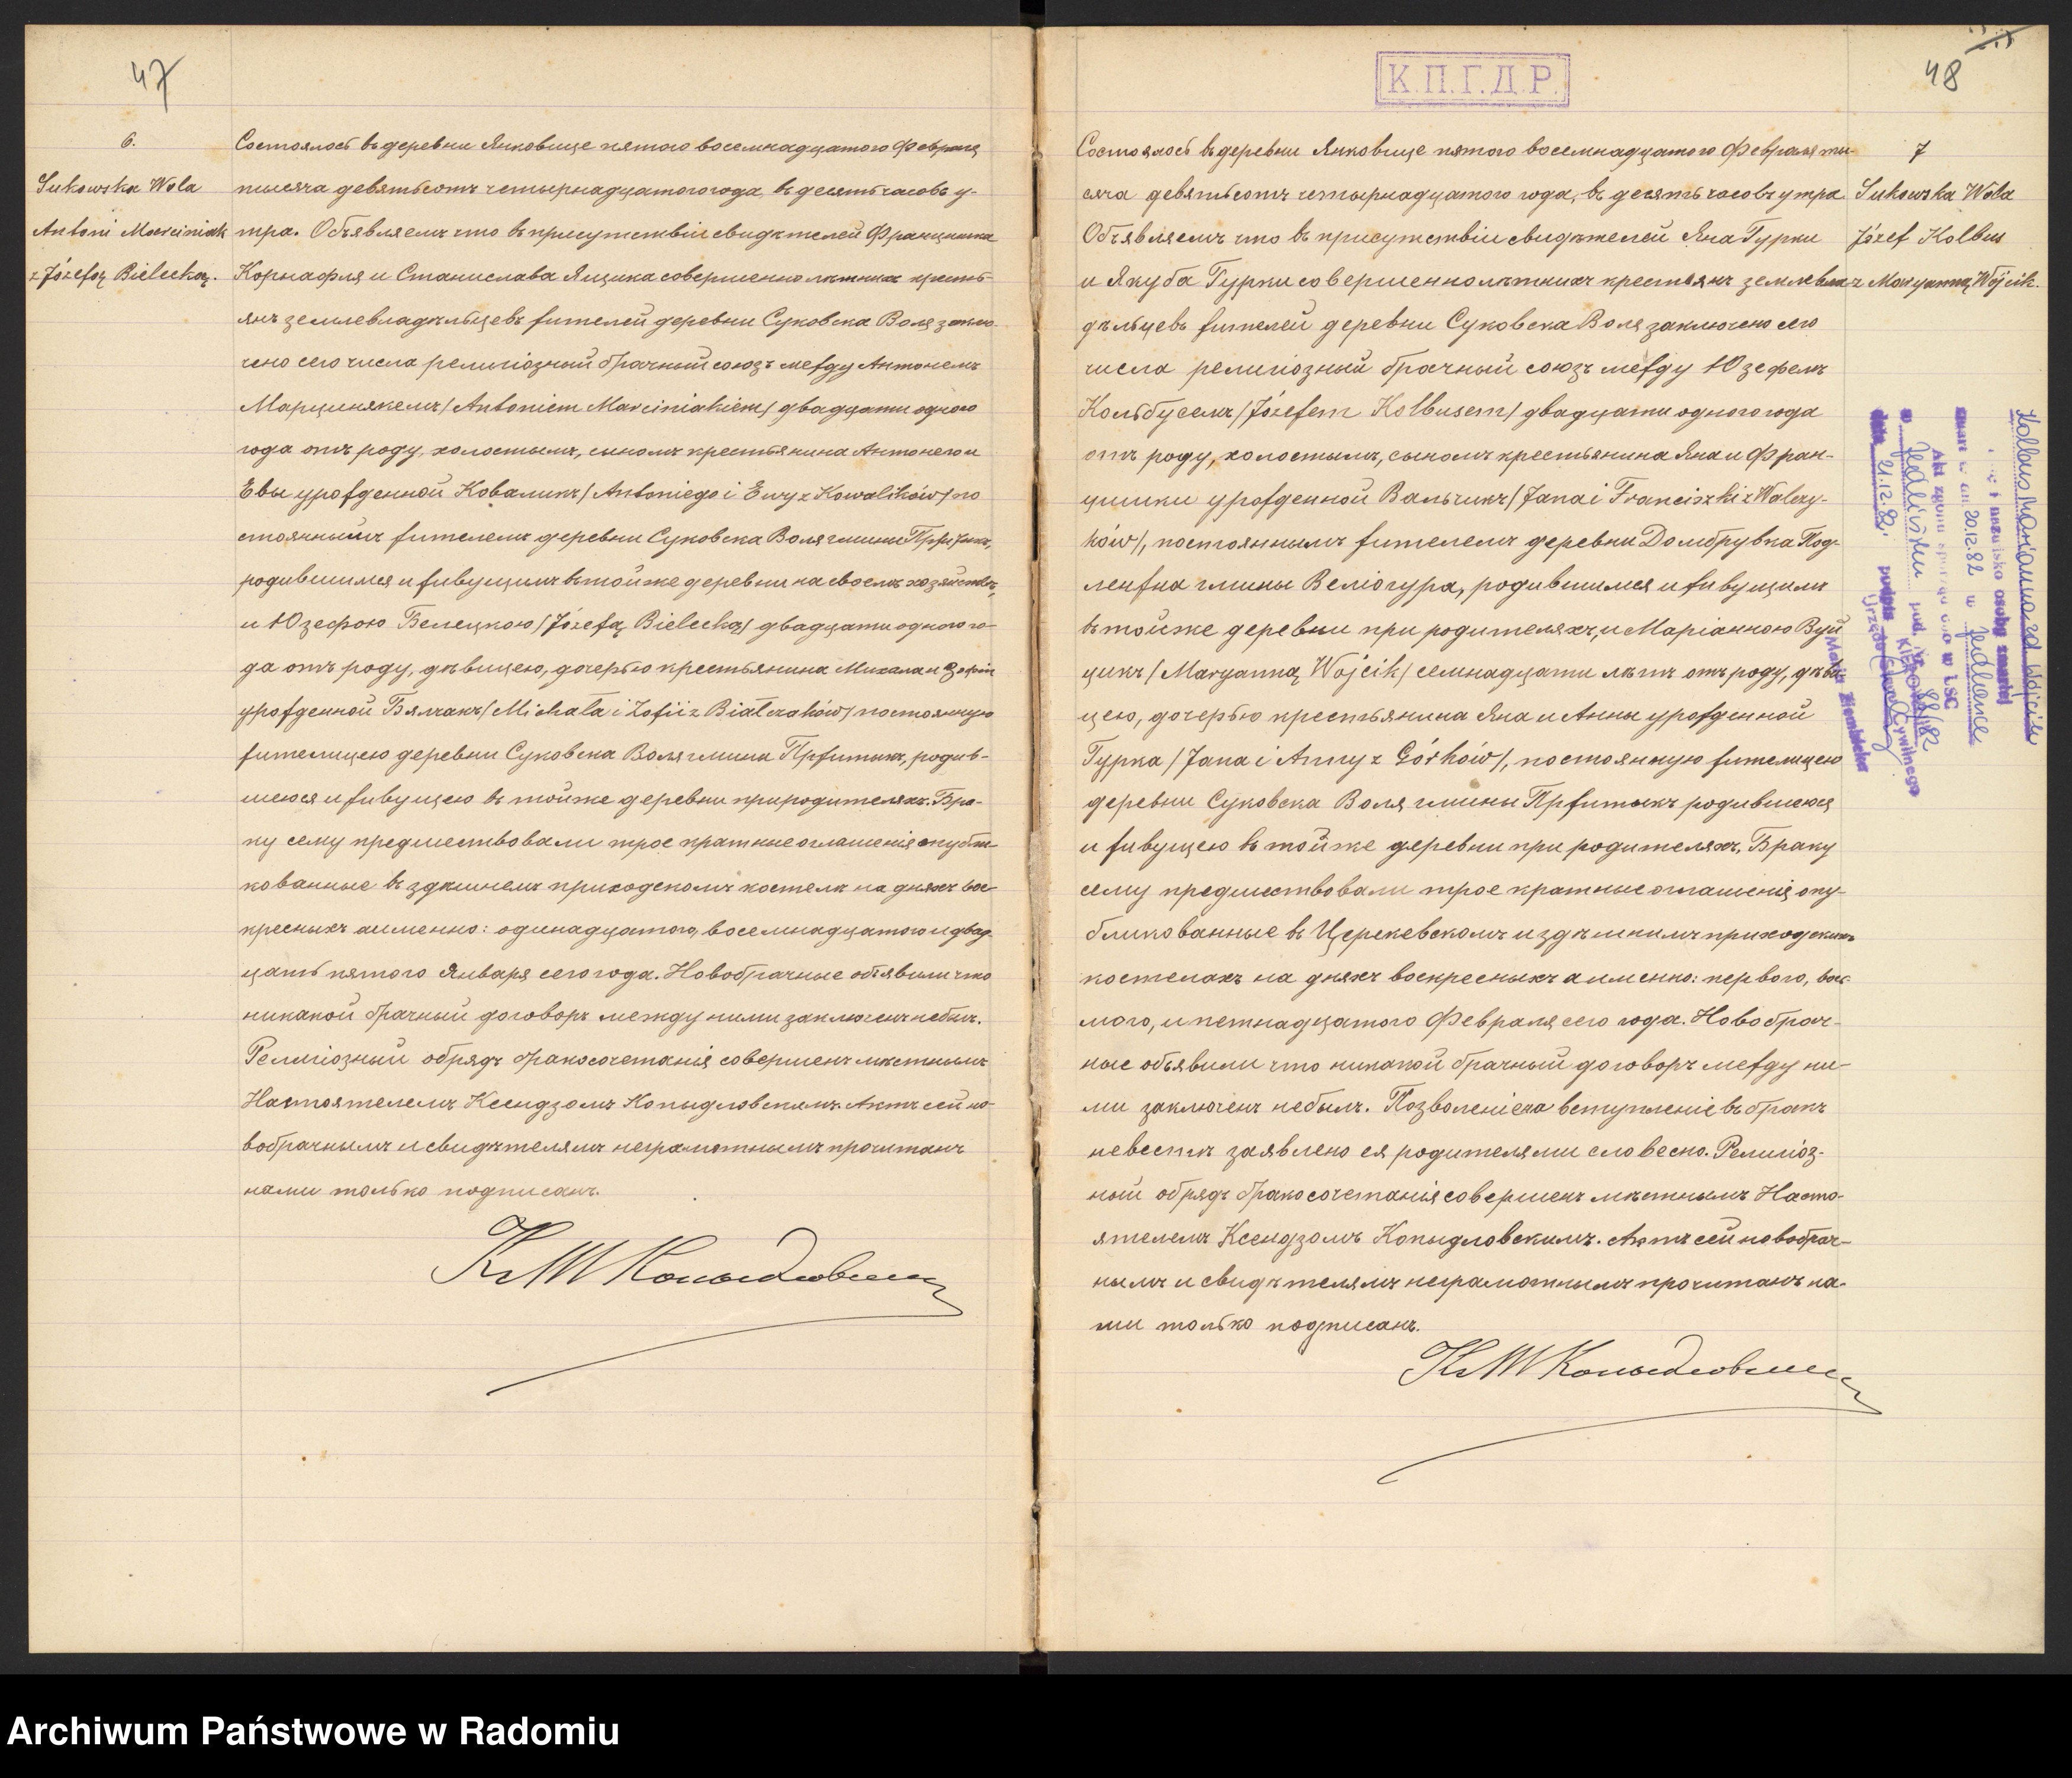 47
6.
Sukowska Wola
Antoni Marciniak
z Józefą Bielecką.
Состоялось въ деревни Янковице пятого восемнадцатого Февраля
тысяча девятьсотъ четырнадцатого года, въ десять часовъ у-
тра. Объявляемъ что въ присутствіи свидѣтелей Францишка
Корнафля и Станислава Ящика совершеннолѣтнихъ кресть-
янъ землевладѣльцевъ жителей деревни Суковска Воля заклю-
чено сего числа религіозный брачный союзъ между Антонемъ
Марцинякемъ /Antoniem Marciniakiem/ двадцати одного
года отъ роду, холостымъ, сыномъ крестьянина Антонего и
Евы урожденной Коваликъ /Antoniego i Ewy z Kowalików/ по
стояннымъ жителемъ деревни Суковска Воля гмины Пржитыкъ,
родившимся и живущимъ въ тойже деревни на своемъ хозяйствѣ,
и Юзефою Белецкою /Józefą Bielecką/ двадцати одного го-
да отъ роду, дѣвицею, дочерью крестьянина Михала и Зофіи
урожденной Бялчакъ /Michała i Zofii z Białczaków/ постоянную
жителицею деревни Суковска Воля гмины Пржитыкъ, родив-
шеюся и живущею въ тойже деревни при родителяхъ. Бра-
ку сему предшествовали трое кратные оглашенія опубли-
кованные въ здѣшнемъ приходскомъ костелѣ на дняхъ вос-
кресныхъ а именно: одинадцатого, восемнадцатого и двад-
цать пятого Января сего года. Новобрачные объявили что
никакой брачный договоръ между ними заключенъ небылъ.
Религіозный обрядъ бракосочетанія совершенъ мѣстнымъ
Настоятелемъ Ксендзомъ Копыдловскимъ. Актъ сей но-
вобрачнымъ и свидѣтелямъ неграмотнымъ прочитанъ
нами только подписанъ.
Кс М Копыдловски
К.П.Г.Д.Р.
48
7
Sukowska Wola
Józef Kolbus
z Maryanną Wójcik.
Состоялось въ деревни Янковице пятого восемнадцатого Февраля ты-
сяча девятьсотъ четырнадцатого года, въ десять часовъ утра.
Объявляемъ что въ присутствіи свидѣтелей Яна Гурки
и Якуба Гурки совершеннолѣтнихъ крестьянъ землевла-
дѣльцевъ жителей деревни Суковска Воля заключено сего
числа религіозный брачный союзъ между Юзефемъ
Кольбусемъ /Józefem Kolbusem/ двадцати одного года
отъ роду, холостымъ, сыномъ крестьянина Яна и Фран-
цишки урожденной Вальчикъ /Jana i Franciszki z Walczy-
ków/, постояннымъ жителемъ деревни Домбрувка Под-
ленжна гмины Веліогура, родившимся и живущимъ
въ тойже деревни при родителяхъ, и Маріанною Вуй
цикъ /Maryanną Wójcik/ семнадцати лѣтъ отъ роду, дѣви-
цею, дочерью крестьянина Яна и Анны урожденной
Гурка /Jana i Anny z Górków/, постоянную жителицею
деревни Суковска Воля гмины Пржитыкъ родившеюся
и живущею въ тойже деревни при родителяхъ. Браку
сему предшествовали трое кратные оглашенія опу-
бликованные въ Церекевскомъ и здѣшнимъ приходскихъ
костелахъ на дняхъ воскресныхъ а именно: первого, вось-
мого, и петнадцатого Февраля сего года. Новобрач-
ные объявили что никакой брачный договоръ между ни-
ми заключенъ небылъ. Позволеніе на вступленіе въ бракъ
невестѣ заявлено ея родителями словесно. Религіоз-
ный обрядъ бракосочетанія совершенъ мѣстнымъ Насто-
ятелемъ Ксендзомъ Копыдловскимъ. Актъ сей новобрач-
нымъ и свидѣтелямъ неграмотнымъ прочитанъ на-
ми только подписанъ.
Кс М Копыдловски
Kolbus Marianna zd. Wójcik
nazwisko osoby zmarłej
20.12.82 w Jedlance
Akt zgonu w USC
w Jedlińsku pod nr 88/82
data 21.12.82. podpis
Urzędu Stanu Cywilnego
Archiwum Państwowe w Radomiu